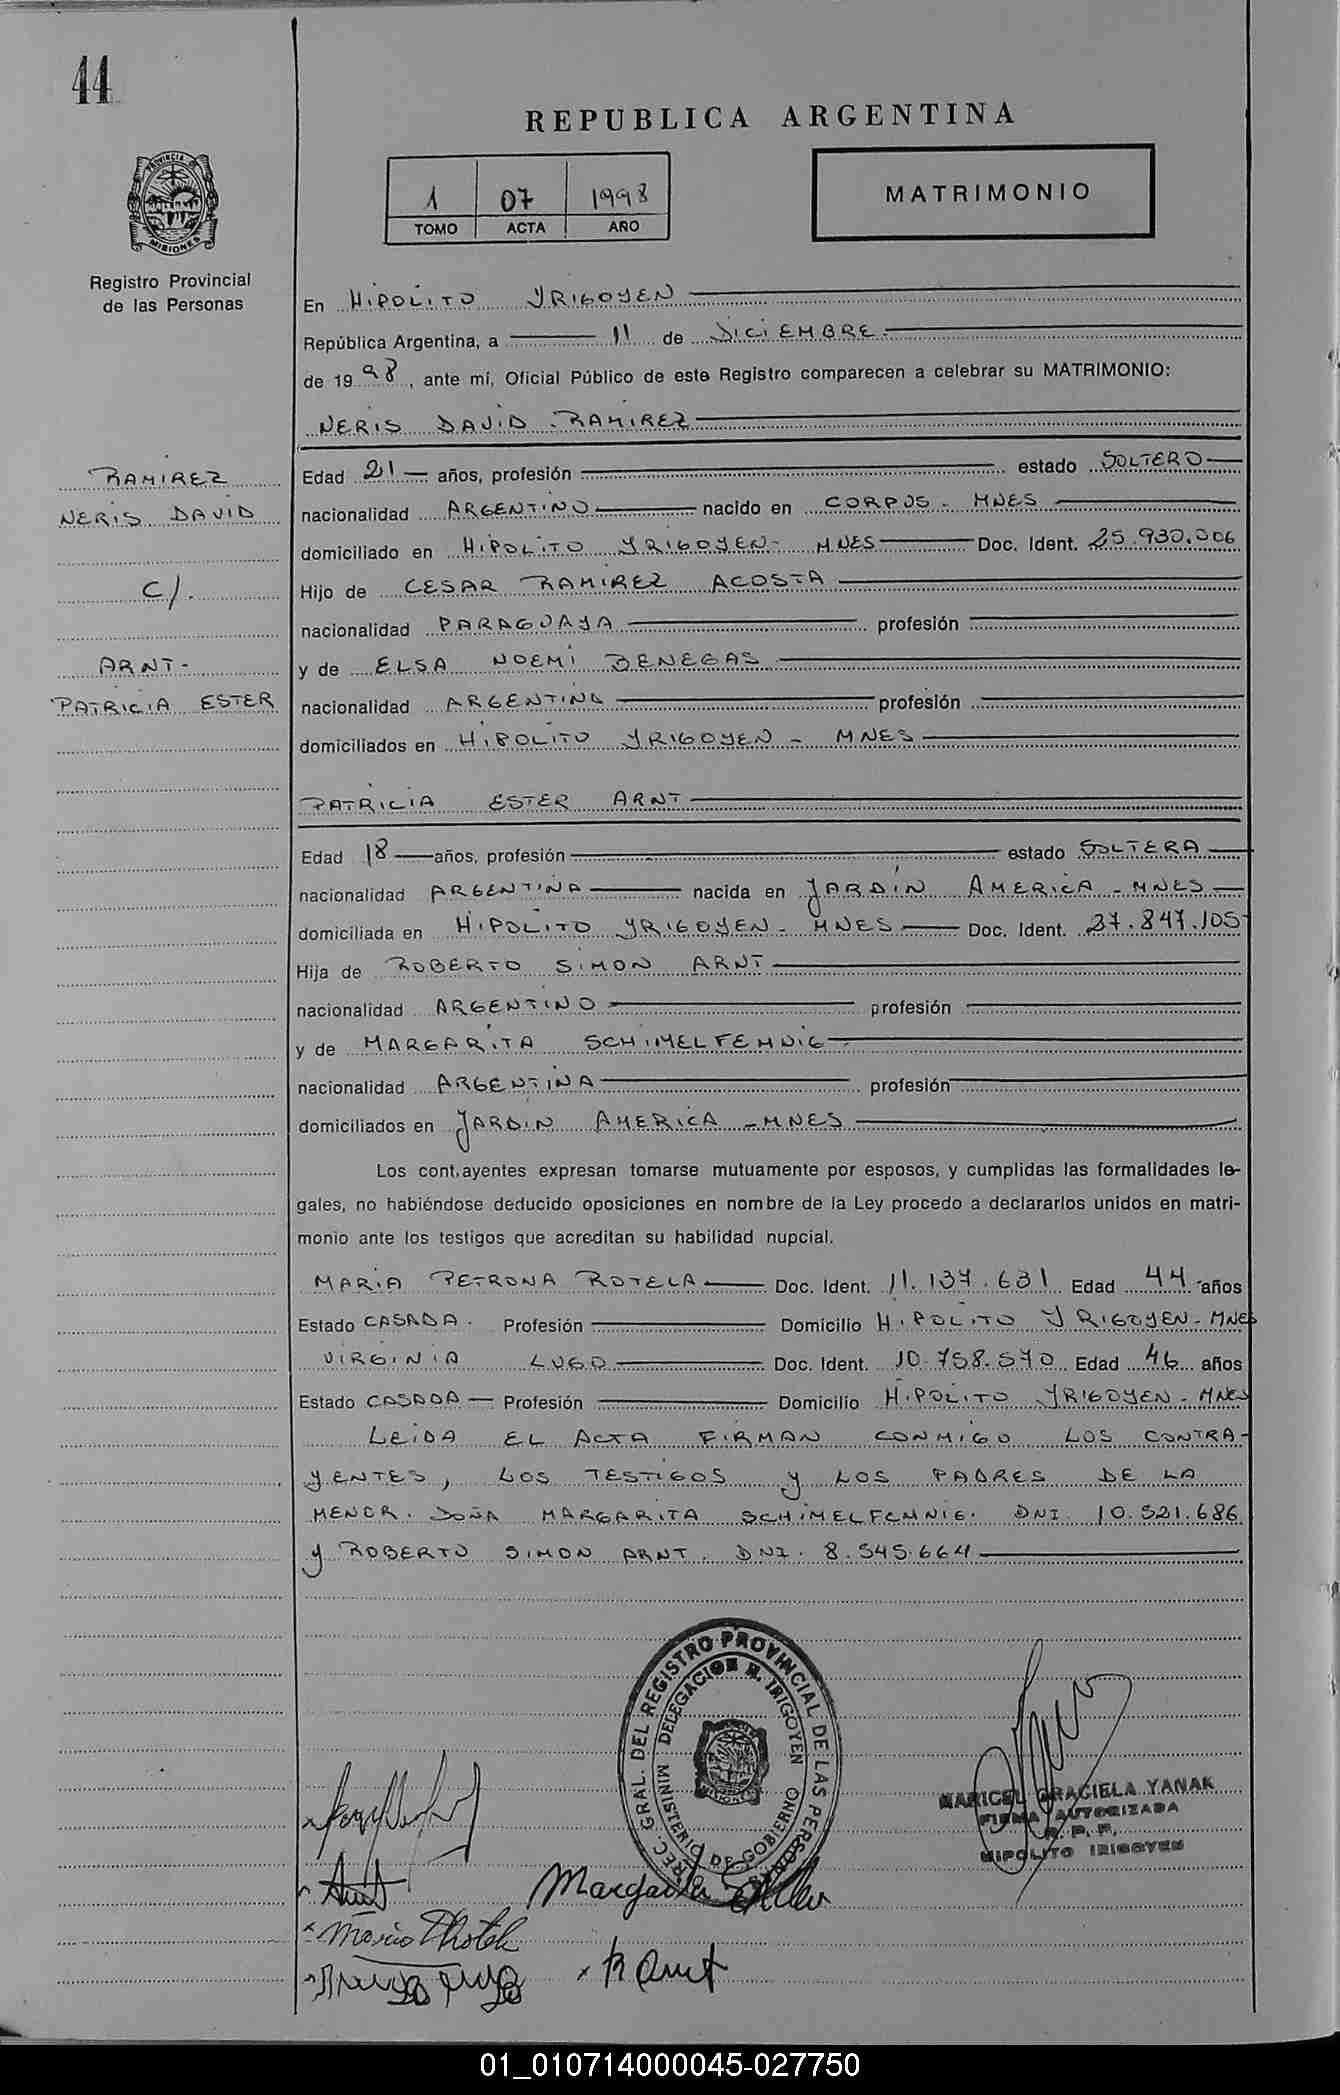 44
REPUBLICA ARGENTINA
PROVINCIA DE
MISIONES
1 07 1998
TOMO ACTA AÑO
MATRIMONIO
Registro Provincial
de las Personas
En HIPOLITO YRIGOYEN
República Argentina, a 11 de DICIEMBRE
de 1998, ante mí, Oficial Público de este Registro comparecen a celebrar su MATRIMONIO:
NERIS DAVID RAMIREZ
RAMIREZ
NERIS DAVID
C/.
ARNT-
PATRICIA ESTER
Edad 21 años, profesión estado SOLTERO
nacionalidad ARGENTINO nacido en CORPUS - MNES
domiciliado en HIPOLITO YRIGOYEN- MNES Doc. Ident. 25.930.006
Hijo de CESAR RAMIREZ ACOSTA
nacionalidad PARAGUAYA profesión
y de ELSA NOEMI BENEGAS
nacionalidad ARGENTINA profesión
domiciliados en HIPOLITO YRIGOYEN - MNES
PATRICIA ESTER ARNT
Edad 18 años, profesión estado SOLTERA
nacionalidad ARGENTINA nacida en JARDIN AMERICA - MNES
domiciliada en HIPOLITO YRIGOYEN - MNES Doc. Ident. 27.847.105
Hija de ROBERTO SIMON ARNT
nacionalidad ARGENTINO profesión
y de MARGARITA SCHIMELFEMNIG
nacionalidad ARGENTINA profesión
domiciliados en JARDIN AMERICA - MNES
Los contrayentes expresan tomarse mutuamente por esposos, y cumplidas las formalidades le-
gales, no habiéndose deducido oposiciones en nombre de la Ley procedo a declararlos unidos en matri-
monio ante los testigos que acreditan su habilidad nupcial.
MARIA PETRONA ROTELA Doc. Ident. 11.137.631 Edad 44 años
Estado CASADA. Profesión Domicilio HIPOLITO YRIGOYEN - MNES
VIRGINIA LUGO Doc. Ident. 10.758.570 Edad 46 años
Estado CASADA Profesión Domicilio HIPOLITO YRIGOYEN - MNES
LEIDA EL ACTA FIRMAN CONMIGO LOS CONTRA-
YENTES, LOS TESTIGOS Y LOS PADRES DE LA
MENOR. DOÑA MARGARITA SCHIMELFEMNIG. DNI. 10.521.686
Y ROBERTO SIMON ARNT. DNI. 8.545.664
DIREC. GRAL. DEL REGISTRO PROVINCIAL DE LAS PERSONAS
DELEGACION H. IRIGOYEN
MINISTERIO DE GOBIERNO
MARICEL GRACIELA YANAK
FIRMA AUTORIZADA
R. P. P.
HIPOLITO IRIGOYEN
Arnt
Margarita
Maria P Rotela
R Arnt
01_010714000045-027750